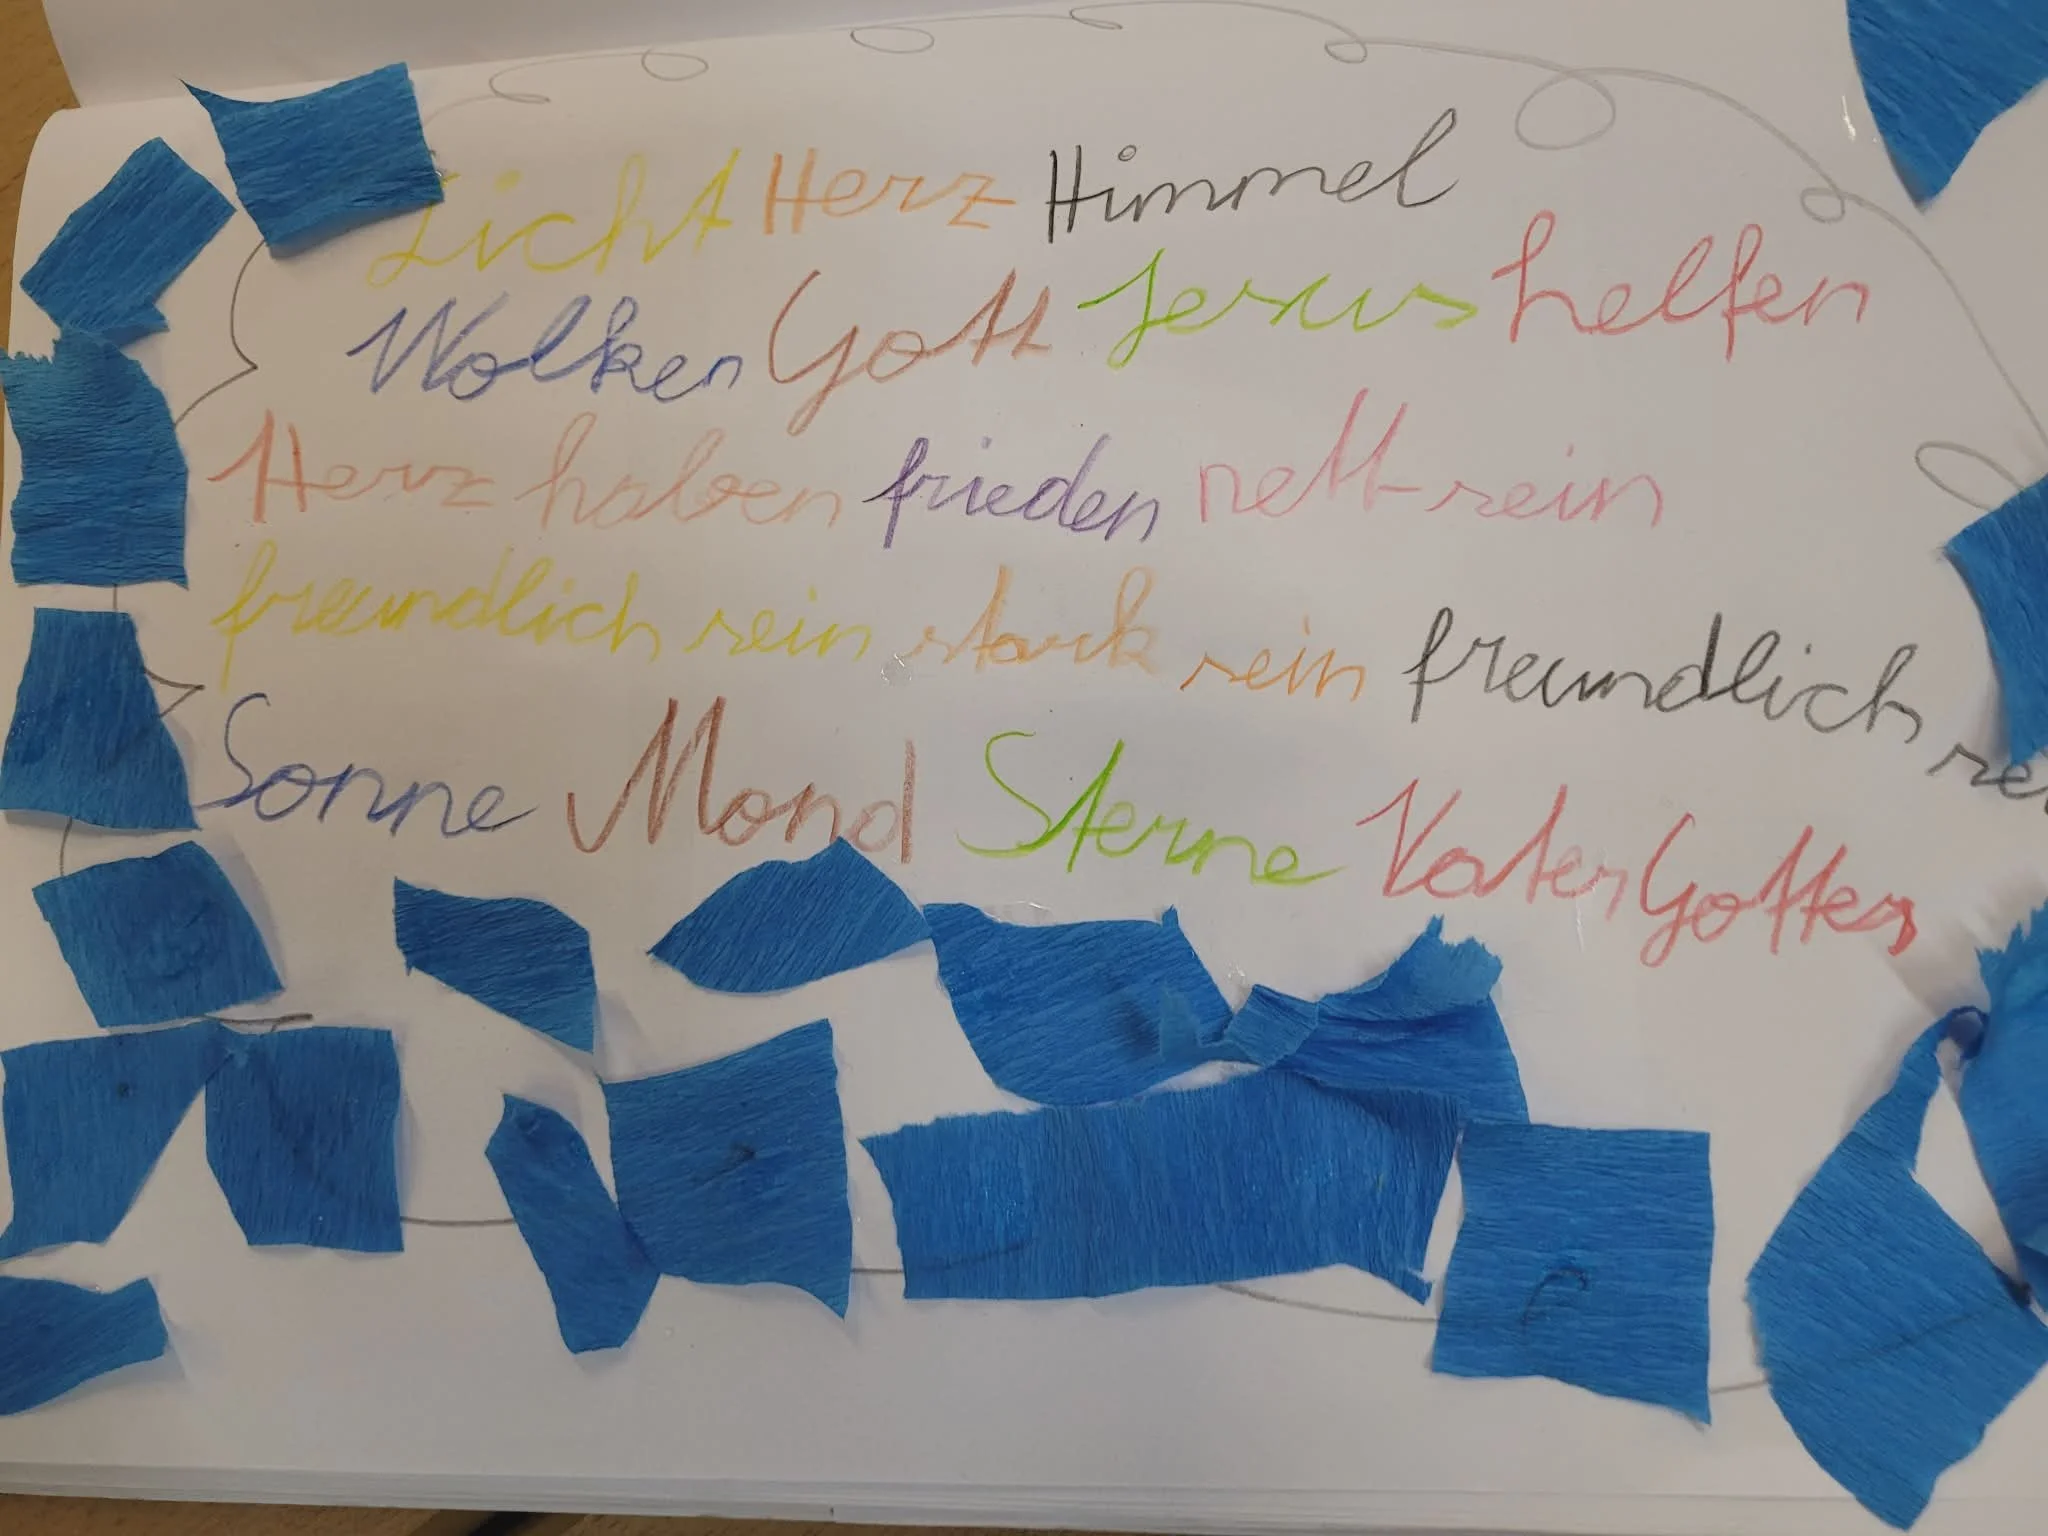 Licht Herz Himmel
Wolken Gott Jesus helfen
Herz haben frieden nett sein
freundlich sein stark sein freundlich se
Sonne Mond Sterne Vater Gottes